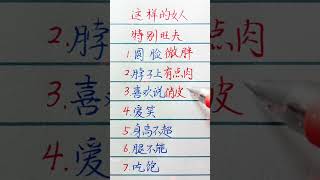 这样的女人
特别旺夫
1.圆脸微胖
2.脖子上有点肉
3.喜欢说俏皮
4.爱笑
5.身高不超
6.腿不能
7.吃饱
2.脖
3.喜
4.爱
肉
皮